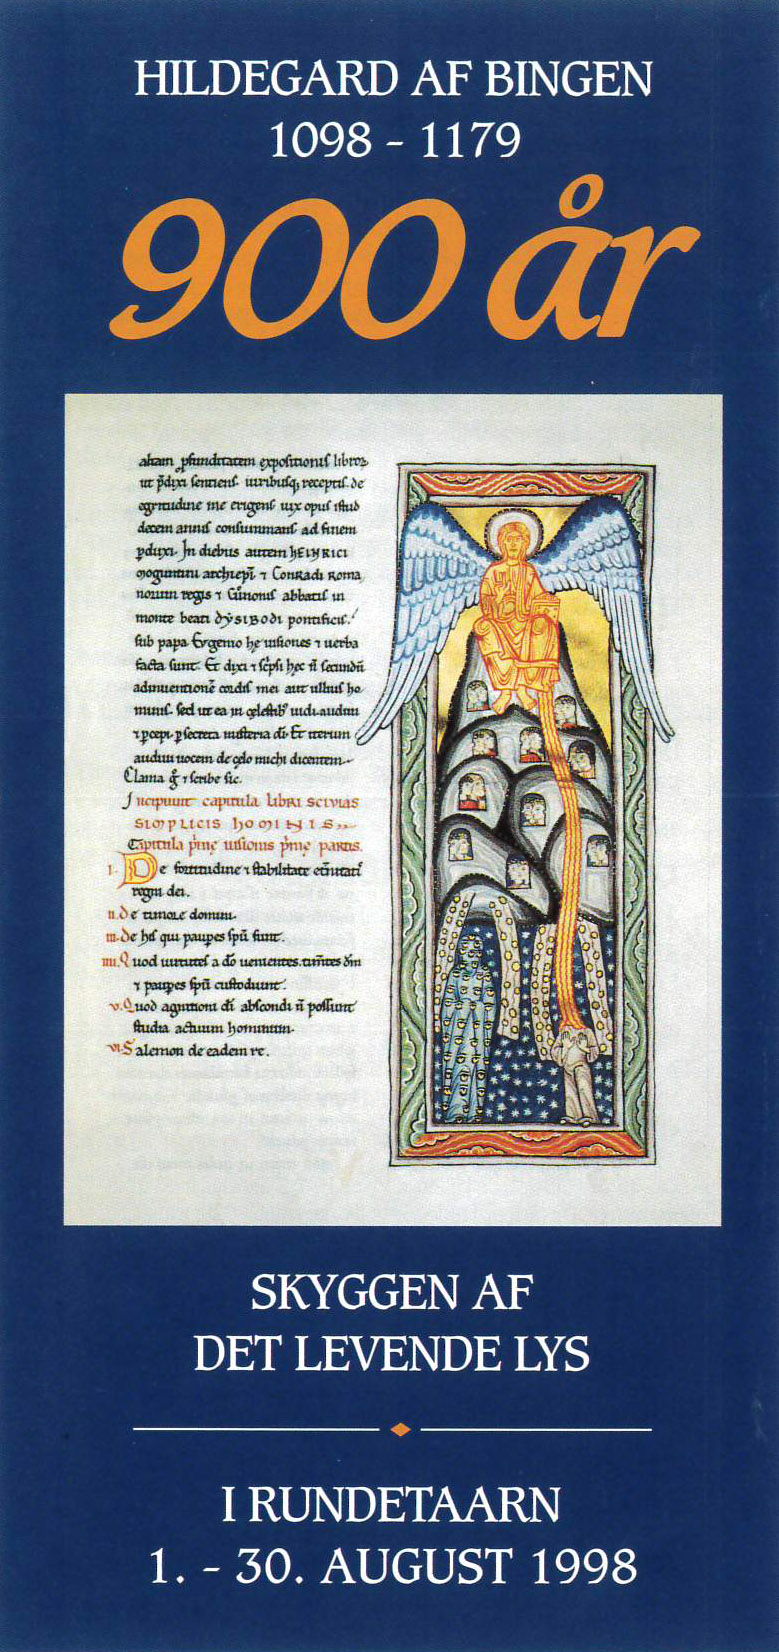 HILDEGARD AF BINGEN
1098 - 1179
900 år
altam ꝓfunditatem expositionis libroꝝ
ut p̄dixi sentiens. uiribusq; receptis de
egritudine me erigens uix opus istud
decem annis consummans ad finem
ꝑduxi. In diebus autem HEINRICI
moguntini archiepi̅ ⁊ Conradi Roma
norum regis ⁊ Cunonis abbatis in
monte beati DYSIBODI pontificis.
sub papa Eugenio he uisiones ⁊ uerba
facta sunt. Et dixi ⁊ sc̅psi hec n̅ secundū
adinuentionē cordis mei aut ullius ho
minis. sed ut ea in celestib' uidi. audiui
⁊ ꝑcepi. ꝑ secreta misteria di̅. Et iterum
audiui uocem de celo michi dicentem.
Clama g̊ ⁊ scribe sic.
Incipiunt capitula libri scivias
simplicis hominis.
Capitula p̅me uisionis p̅me partis.
I. De fortitudine ⁊ stabilitate et̅nitatis
regni dei.
II. De timore domini.
III. De his qui pauꝑes spū sunt.
IIII. Quod uirtutes a do̅ uenientes. tim̅tes dm̅
⁊ pauꝑes spū custodiunt.
V. Quod agnitioni di̅ abscondi n̅ possunt
studia actuum hominum.
VI. Salemon de eadem re.
SKYGGEN AF
DET LEVENDE LYS
I RUNDETAARN
1. - 30. AUGUST 1998